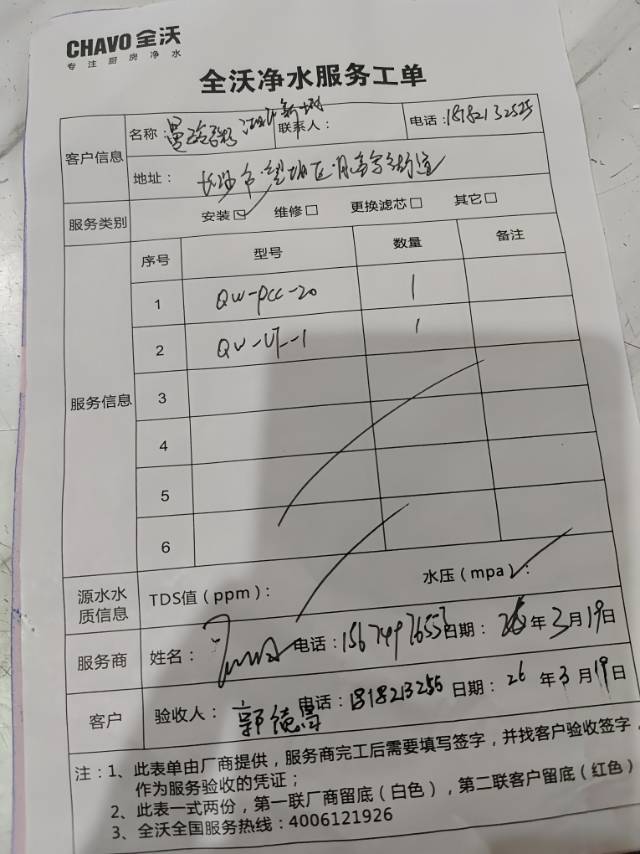 CHAVO 全沃
专注厨房净水
全沃净水服务工单
客户信息
名称： 联系人： 电话：18182132525
地址：长沙市望城区月亮岛街道
服务类别 安装☑ 维修□ 更换滤芯□ 其它□
服务信息
序号 型号 数量 备注
1 QW-PCC-20 1
2 QW-UF-1 1
3
4
5
6
源水水质信息 TDS值（ppm）： 水压（mpa）：
服务商 姓名： 电话：15674997655 日期： 年3月19日
客户 验收人：郭德 电话：1818213255 日期：26年3月19日
注：1、此表单由厂商提供，服务商完工后需要填写签字，并找客户验收签字，
作为服务验收的凭证；
2、此表一式两份，第一联厂商留底（白色），第二联客户留底（红色）
3、全沃全国服务热线：4006121926